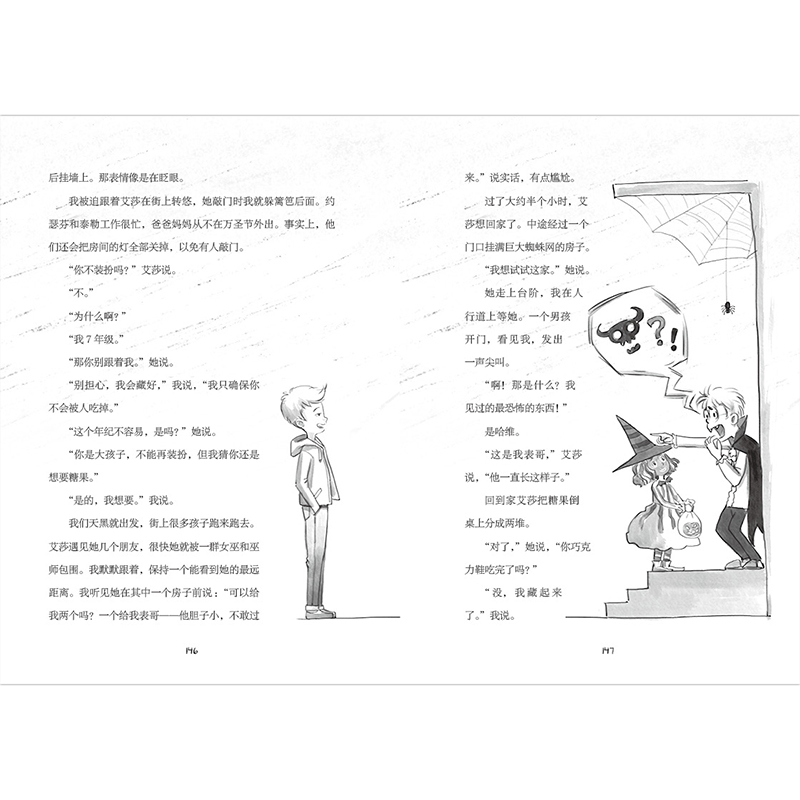 后挂墙上。那表情像是在眨眼。
我被迫跟着艾莎在街上转悠，她敲门时我就躲篱笆后面。约
瑟芬和泰勒工作很忙，爸爸妈妈从不在万圣节外出。事实上，他
们还会把房间的灯全部关掉，以免有人敲门。
“你不装扮吗？”艾莎说。
“不。”
“为什么啊？”
“我7年级。”
“那你别跟着我。”她说。
“别担心，我会藏好，”我说，“我只确保你
不会被人吃掉。”
“这个年纪不容易，是吗？”她说。
“你是大孩子，不能再装扮，但我猜你还是
想要糖果。”
“是的，我想要。”我说。
我们天黑就出发，街上很多孩子跑来跑去。
艾莎遇见她几个朋友，很快她就被一群女巫和巫
师包围。我默默跟着，保持一个能看到她的最远
距离。我听见她在其中一个房子前说：“可以给
我两个吗？一个给我表哥——他胆子小，不敢过
146
来。”说实话，有点尴尬。
过了大约半个小时，艾
莎想回家了。中途经过一个
门口挂满巨大蜘蛛网的房子。
“我想试试这家。”她说。
她走上台阶，我在人
行道上等她。一个男孩
开门，看见我，发出
一声尖叫。
“啊！那是什么？我
见过的最恐怖的东西！”
是哈维。
“这是我表哥，”艾莎
说，“他一直长这样子。”
回到家艾莎把糖果倒
桌上分成两堆。
“对了，”她说，“你巧克
力鞋吃完了吗？”
“没，我藏起来
了。”我说。
147
?!